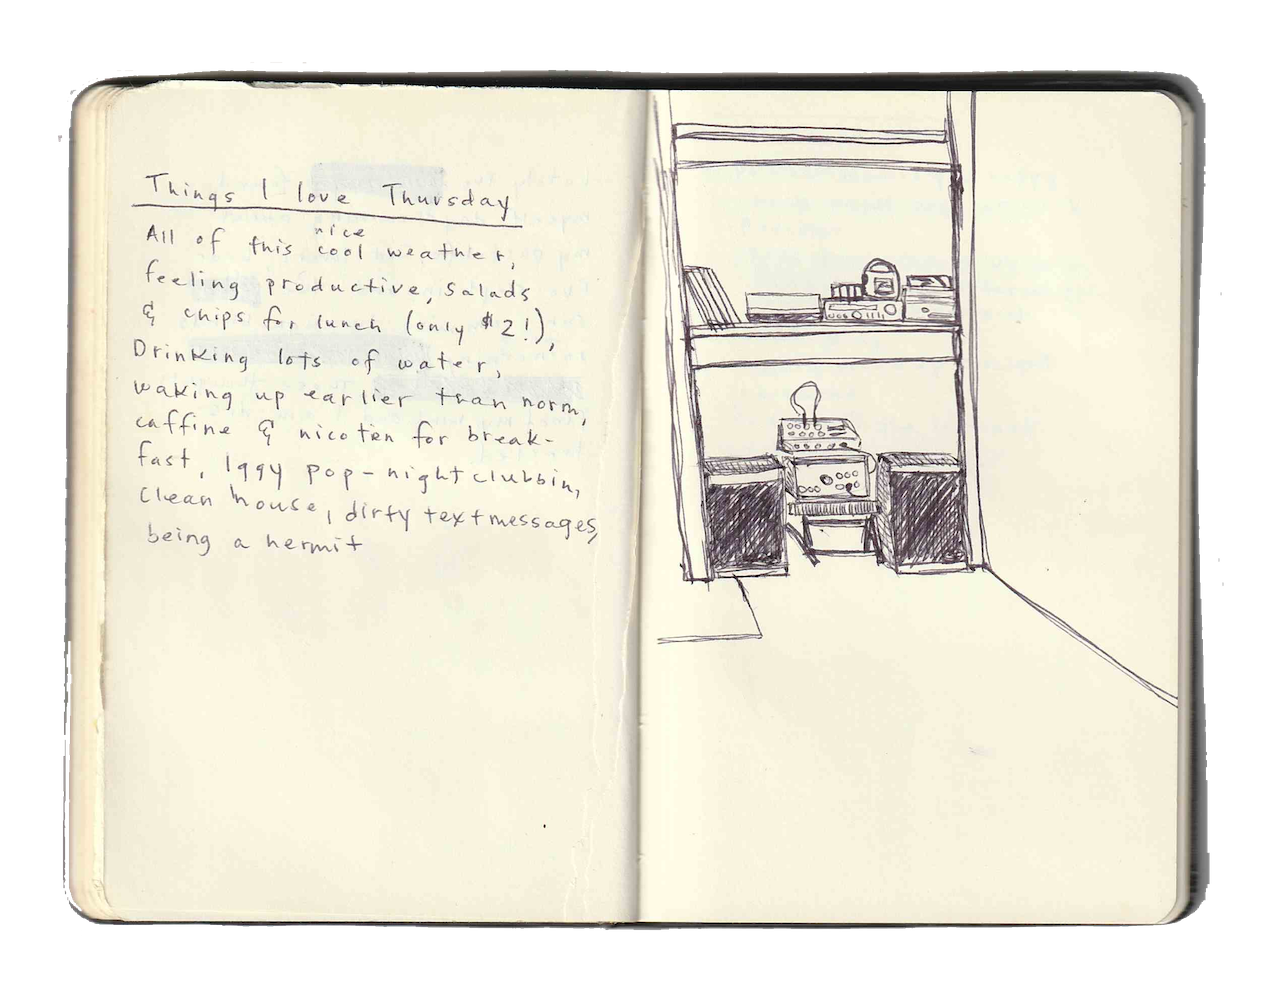 Things I love Thursday
nice
All of this cool weather,
feeling productive, salads
& chips for lunch (only $2!),
Drinking lots of water,
waking up earlier than norm,
caffine & nicoten for break-
fast, Iggy pop - night clubbin,
clean house, dirty text messages,
being a hermit